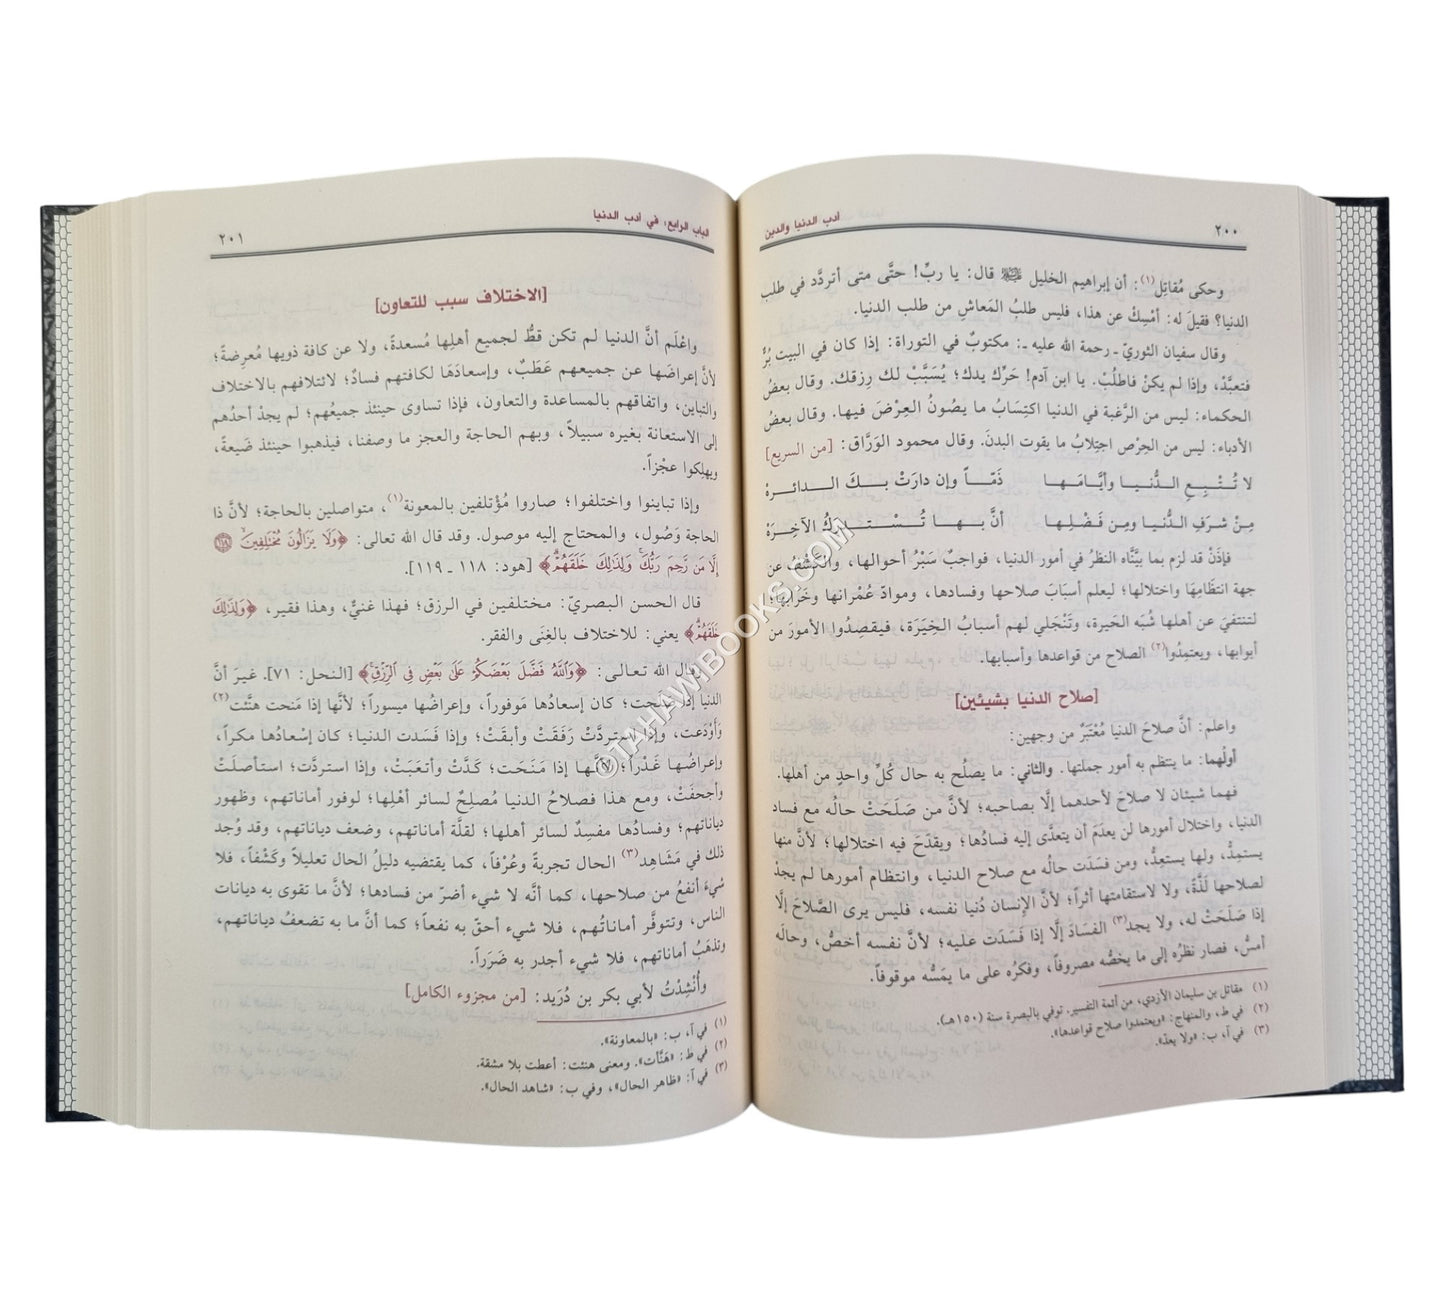 ٢٠٠
أدب الدنيا والدين
وحكى مُقاتِل(١): أن إبراهيم الخليل ﷺ قال: يا ربِّ! حتَّى متى أتردَّد في طلب
الدنيا؟ فقيلَ له: أمْسِكْ عن هذا، فليس طلبُ المَعاشِ من طلب الدنيا.
وقال سفيان الثوريّ ـ رحمة الله عليه ـ: مكتوبٌ في التوراة: إذا كان في البيت بُرٌّ
فتعبَّدْ، وإذا لم يكنْ فاطلُبْ. يا ابن آدم! حَرِّك يدك؛ يُسَبَّبْ لك رِزقك. وقال بعضُ
الحكماء: ليس من الرَّغبة في الدنيا اكتِسَابُ ما يصُونُ العِرْضَ فيها. وقال بعضُ
الأدباء: ليس من الحِرْص اجتِلابُ ما يقوت البدنَ. وقال محمود الوَرَّاق: [من السريع]
لا تُـتْـبِـعِ الـدُّنـيـا وأيَّـامَـهـا ذَمّـاً وإن دارَتْ بـكَ الـدائـرهْ
مِنْ شرَفِ الـدُّنيـا ومِن فَـضْلِـهـا أنَّ بـهـا تُـسْـتَـدْرَكُ الآخِـرَهْ
فإذَنْ قد لزم بما بيَّنَّاه النظرُ في أمور الدنيا، فواجبٌ سَبْرُ أحوالها، والكَشْفُ عن
جهة انتظَامِهَا واختلالها؛ ليعلم أسبَابَ صلاحها وفسادها، وموادّ عُمْرانها وخَرَابها؛
لتنتفيَ عن أهلها شُبَه الحَيرة، وتَنْجَلي لهم أسبابُ الخِيَرَة، فيقصِدُوا الأمورَ من
أبوابها، ويعتمِدُوا(٢) الصلاح من قواعدها وأسبابها.
[صلاح الدنيا بشيئين]
واعلم: أنَّ صلاحَ الدنيا مُعْتَبَرٌ من وجهين:
أولُهما: ما ينتظم به أمور جملتها. والثاني: ما يصلُح به حال كُلِّ واحدٍ من أهلها.
فهما شيئان لا صلاحَ لأحدهما إلَّا بصاحبه؛ لأنَّ من صَلَحَتْ حالُه مع فساد
الدنيا، واختلال أمورها لن يعدَمَ أن يتعدَّى إليه فسادُها؛ ويقدَحَ فيه اختلالها؛ لأنَّ منها
يستمِدُّ، ولها يستعِدُّ، ومن فسَدَت حالُه مع صلاح الدنيا، وانتظام أمورها لم يجدْ
لصلاحها لَذَّةً، ولا لاستقامتها أثراً؛ لأنَّ الإنسان دُنيا نفسه، فليس يرى الصَّلاحَ إلَّا
إذا صَلَحَتْ له، ولا يجد(٣) الفسَادَ إلَّا إذا فَسَدَت عليه؛ لأنَّ نفسه أخصُّ، وحالَه
أمسُّ، فصار نظرُه إلى ما يخصُّه مصروفاً، وفكرُه على ما يَمَسُّه موقوفاً.
(١) مقاتل بن سليمان الأزدي، من أئمة التفسير. توفي بالبصرة سنة (١٥٠هـ).
(٢) في ط، والمنهاج: «ويعتمدوا صلاح قواعدها».
(٣) في آ، ب: «ولا يعدّ».
الباب الرابع: في أدب الدنيا
٢٠١
[الاختلاف سبب للتعاون]
واعْلَم أنَّ الدنيا لم تكن قطُّ لجميع أهلِها مُسعدةً، ولا عن كافة ذويها مُعرِضةً؛
لأنَّ إعراضَها عن جميعهم عَطَبٌ، وإسعادَهَا لكافتهم فسادٌ؛ لائتلافهم بالاختلاف
والتباين، واتفاقهم بالمساعدة والتعاون، فإذا تساوى حينئذ جميعُهم؛ لم يجدْ أحدُهم
إلى الاستعانة بغيره سبيلاً، وبهم الحاجة والعجز ما وصفنا، فيذهبوا حينئذ ضَيعةً،
ويهلِكوا عجْزاً.
وإذا تباينوا واختلفوا؛ صاروا مُؤْتلفين بالمعونة(١)، متواصلين بالحاجة؛ لأنَّ ذا
الحاجة وَصُول، والمحتاج إليه موصول. وقد قال الله تعالى: ﴿وَلَا يَزَالُونَ مُخْتَلِفِينَ ١١٨
إِلَّا مَن رَّحِمَ رَبُّكَ وَلِذَٰلِكَ خَلَقَهُمْ﴾ [هود: ١١٨ ـ ١١٩].
قال الحسن البصريّ: مختلفين في الرزق؛ فهذا غنيٌّ، وهذا فقير، ﴿وَلِذَٰلِكَ
خَلَقَهُمْ﴾ يعني: للاختلاف بالغِنَى والفقر.
وقال الله تعـالى: ﴿وَٱللَّهُ فَضَّلَ بَعْضَكُمْ عَلَىٰ بَعْضٍ فِي ٱلرِّزْقِ﴾ [النحل: ٧١]. غيرَ أنَّ
الدنيا إذا صلحت؛ كان إسعادُها مَوفوراً، وإعراضُها ميسوراً؛ لأنَّها إذا مَنحت هنَّئت(٢)
وَأوْدَعت، وإذا استردَّتْ رَفَقَتْ وأبقَتْ؛ وإذا فسَدت الدنيا؛ كان إسْعادُها مكراً،
وإعراضُـها غَـدْراً؛ لأنَّـها إذا مَنَحَت؛ كَدَّتْ وأتعَبَتْ، وإذا استردَّت؛ استأصلَتْ
وأجحفَتْ، ومع هذا فصلاحُ الدنيا مُصلِحٌ لسائر أهْلِها؛ لوفور أماناتهم، وظهور
دياناتهم؛ وفسادُها مفسِدٌ لسائر أهلها؛ لقلَّة أماناتهم، وضعف دياناتهم، وقد وُجد
ذلك في مَشَاهِد(٣) الحال تجربةً وعُرْفاً، كما يقتضيه دليلُ الحال تعليلاً وكَشْفاً، فلا
شيءَ أنفعُ من صلاحها، كما أنَّه لا شيء أضرّ من فسادها؛ لأنَّ ما تقوى به ديانات
الناس، وتتوفَّر أماناتُهم، فلا شيء أحقّ به نفعاً؛ كما أنَّ ما به تضعفُ دياناتهم،
وتذهَبُ أماناتهم، فلا شيء أجدر به ضَرَراً.
وأُنْشِدْتُ لأبي بكر بن دُرَيد: [من مجزوء الكامل]
(١) في آ، ب: «بالمعاونة».
(٢) في ظ: «هَنَّأت». ومعنى هنئت: أعطت بلا مشقة.
(٣) في آ: «ظاهر الحال»، وفي ب: «شاهد الحال».
©TAHAWIBOOKS.COM